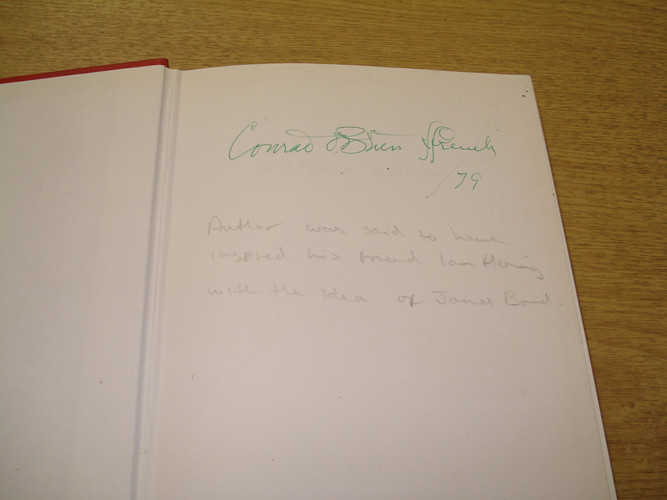 Conrad O'Brien ffrench
/79
Author was said to have
inspired his friend Ian Fleming
with the idea of James Bond.